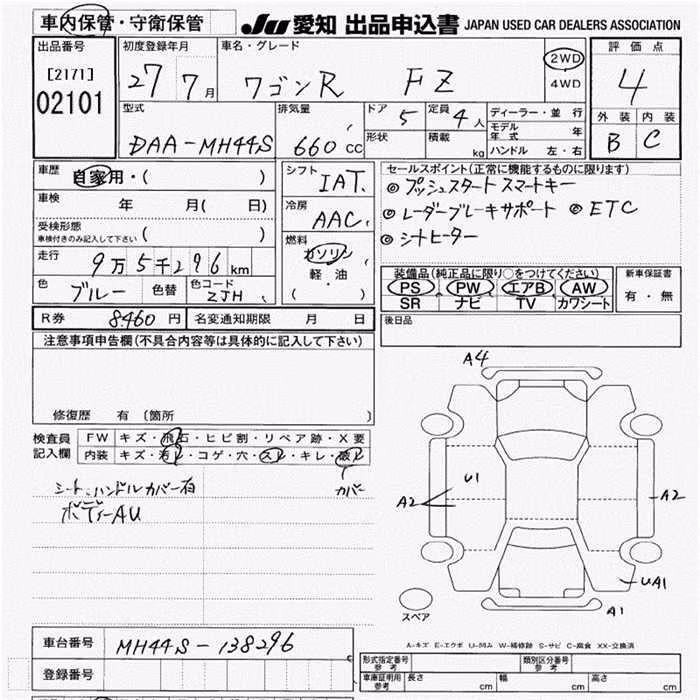 車内保管・守衛保管
JU 愛知 出品申込書 JAPAN USED CAR DEALERS ASSOCIATION
出品番号
[2171]
02101
初度登録年月
27 7月
車名・グレード
ワゴンR FZ
2WD
4WD
評価点
4
外装 内装
B C
型式
DAA-MH44S
排気量
660 CC
ドア 5
形状
定員 4人
積載 kg
ディーラー・並行
モデル年式 年
ハンドル 左・右
車歴
自家用・( )
車検 年 月( 日)
受検形態
車検付きのみ記入して下さい ( )
走行
9万5千296km
色 ブルー 色替 色コード ZJH
シフト
IAT
冷房
AAC
燃料
ガソリン
軽・油
( )
セールスポイント(正常に機能するものに限ります)
◎ プッシュスタート スマートキー
◎ レーダーブレーキサポート ◎ ETC
◎ シートヒーター
装備品(純正品に限り○をつけてください)
PS PW エアB AW
SR ナビ TV カワシート
新車保証書
有・無
R券 8460円 名変通知期限 月 日
後日品
注意事項申告欄(不具合内容等は具体的に記入して下さい)
修復歴 有 〔箇所 〕
検査員
記入欄
FW キズ・飛石・ヒビ割・リペア跡・X要
内装 キズ・汚レ・コゲ・穴・スレ・キレ・破レ
カバー
シート、ハンドルカバー有
ボディーAU
A4
U1
A2
A2
UA1
A1
スペア
A-キズ E-エクボ U-凹み W-補修跡 S-サビ C-腐食 XX-交換済
車台番号 MH44S-138296
登録番号
形式指定番号
参考
類別区分番号
参考
車庫証明用
参考
長さ cm 幅 cm 高さ cm